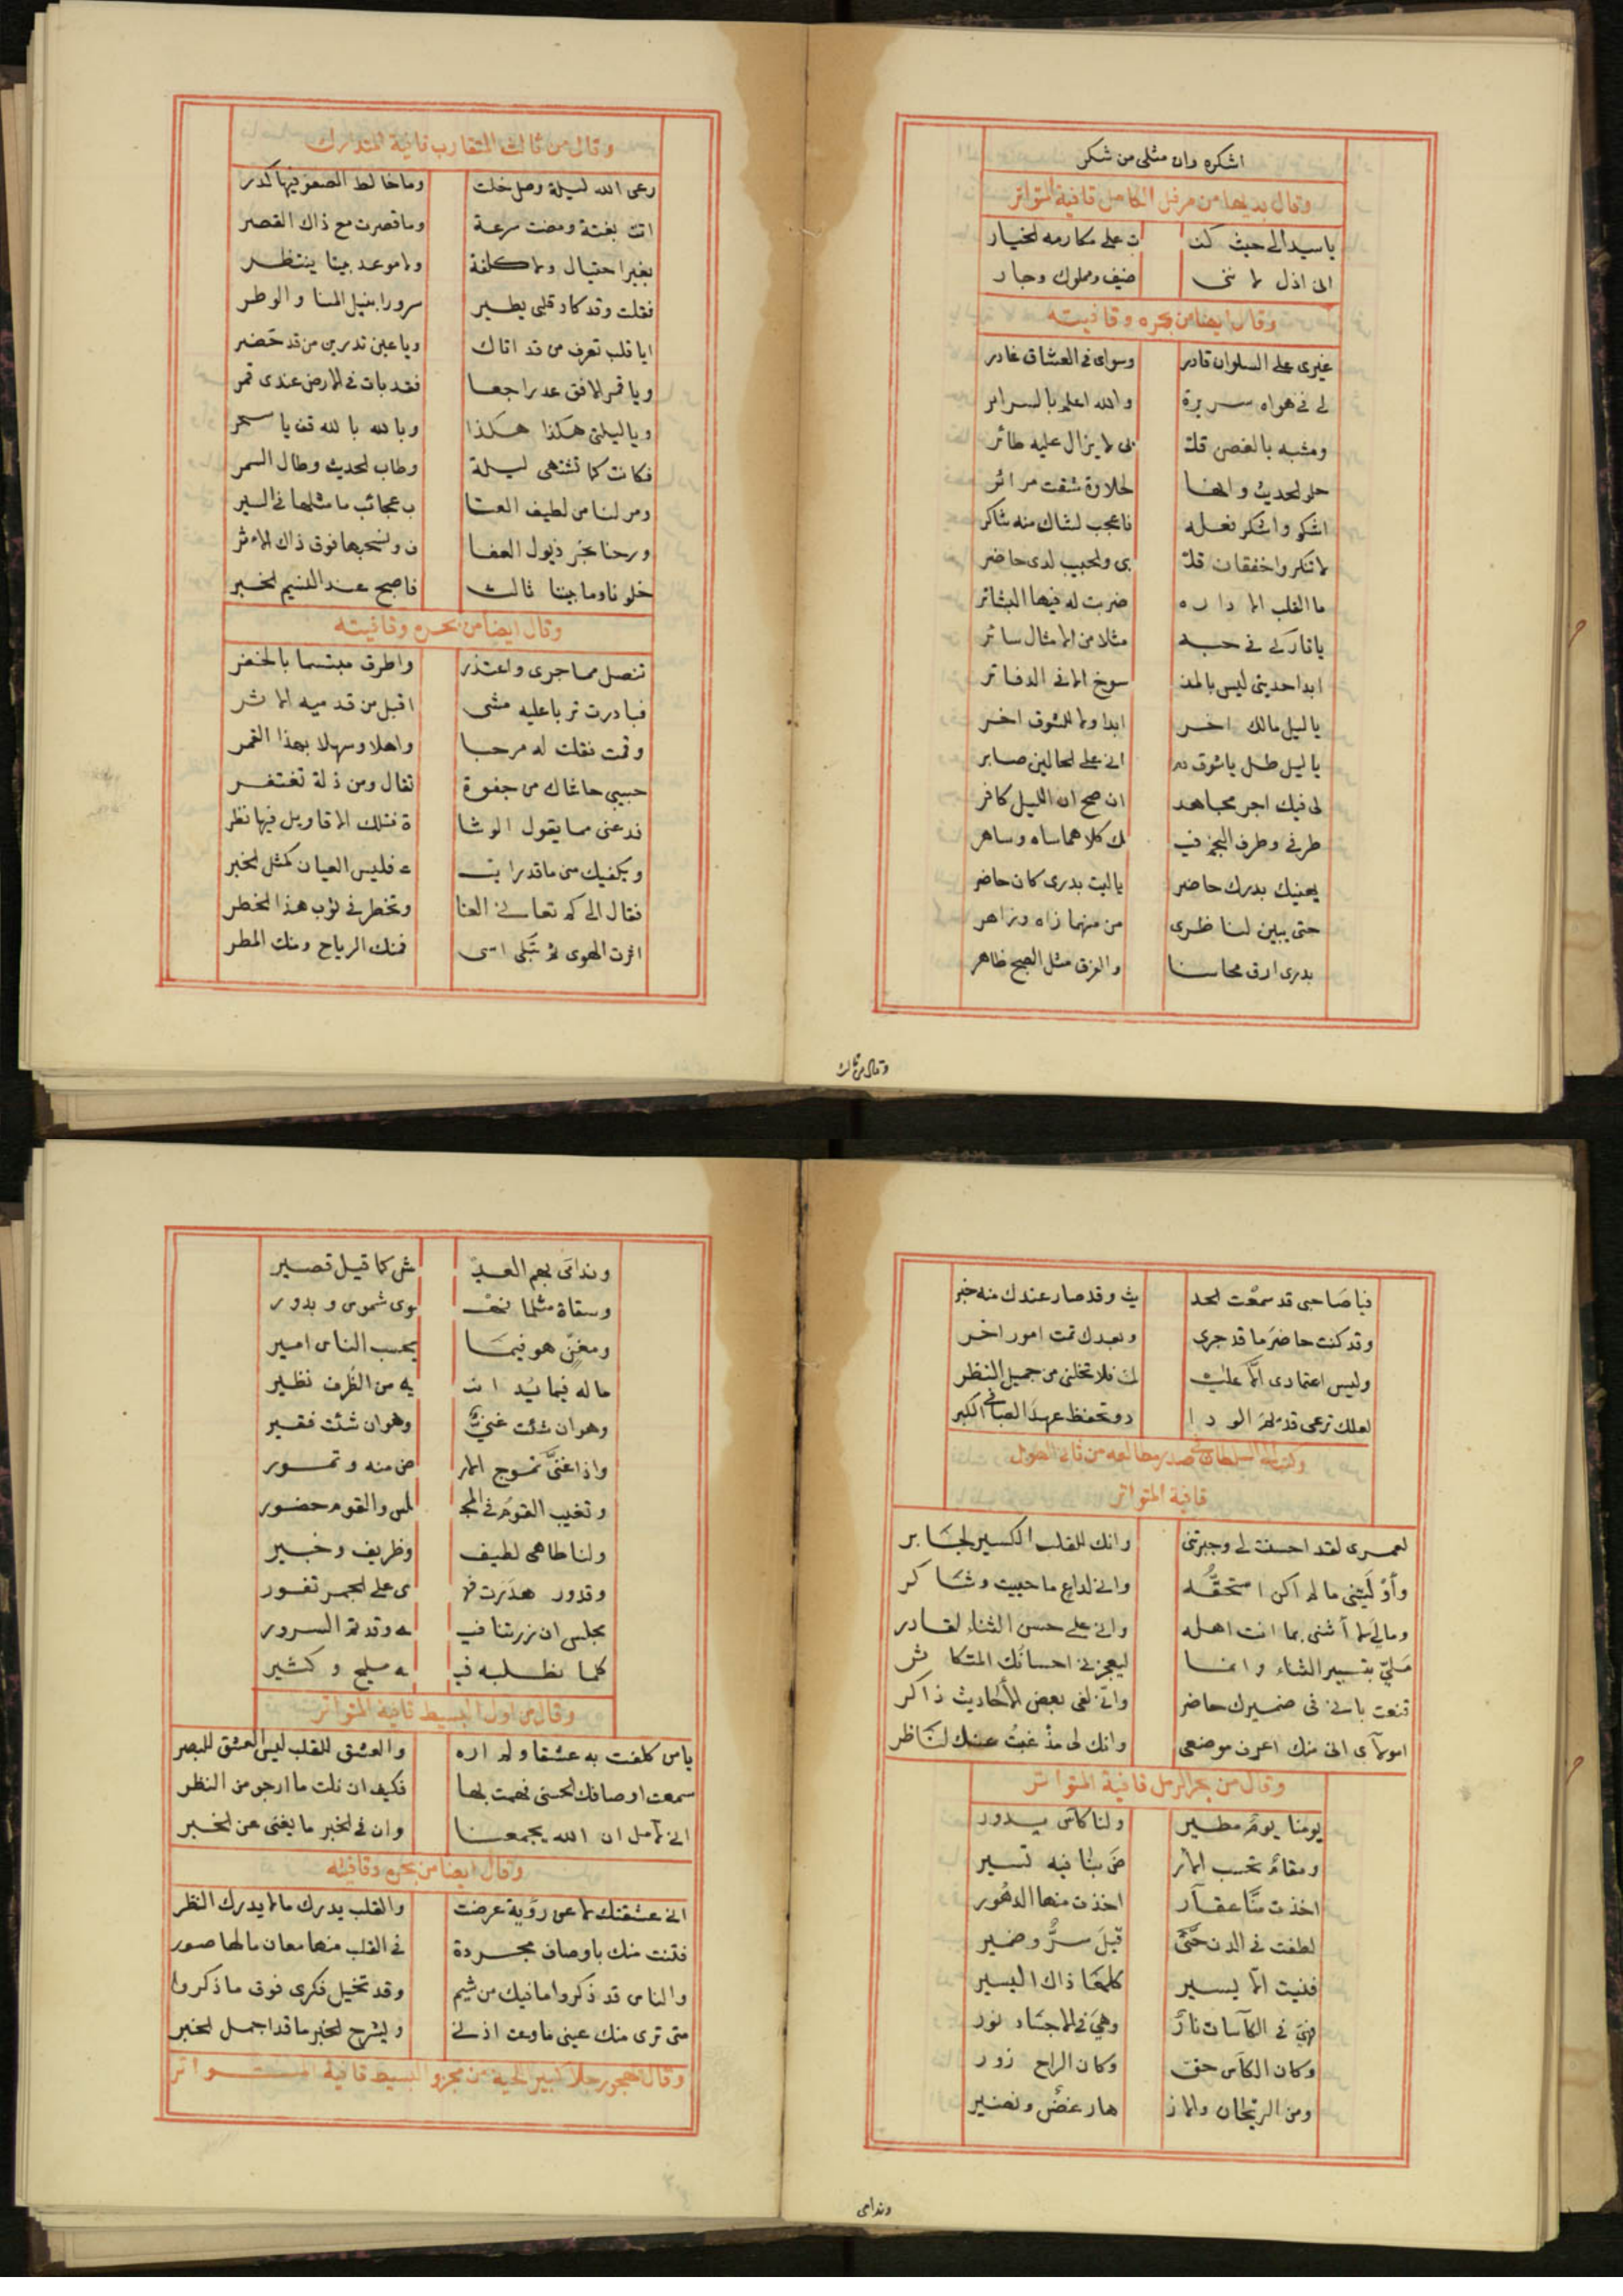 اشكره وان مثلي من شكر
وقال بديها من مرفل الكامل قافية المتواتر
يا سيدا لي حيث كنـ ت على مكارمه الخيار
اني اذل لا ننى ضيف ومملوك وجار
وقال ايضا من بحره وقافيته
غيري على السلوان قادر وسواى في العشاق غادر
لي في هواه سريرة والله اعلم بالسراير
ومشبه بالغصن قلـ بى لا يزال عليه طائر
حلو الحديث وانها لحلاوة شقت مرائر
اشكو واشكر فعله فاعجب لشاك منه شاكر
لا تنكروا خفقان قلـ بى والحبيب لدى حاضر
ما القلب الا داره ضربت له فيها البشائر
يا تاركى فى حبه مثلا من الامثال سائر
ابدا حديثى ليس بالمنـ سوخ الا في الدفاتر
يا ليل مالك اخر ابدا ولا للشوق اخر
يا ليل طل يا شوق دم انى على الحالين صابر
لى فيك اجر مجاهد ان صح ان الليل كافر
طرفي وطرف النجم فيـ ك كلاهما ساه وساهر
يهنيك بدرك حاضر يا ليت بدرى كان حاضر
حتى يبين لناظرى من منهما زاه وزاهر
بدرى ارق محاسنا والفرق مثل الصبح ظاهر
وقال من ثالث
وقال من ثالث المتقارب قافية المتدارك
رعى الله ليلة وصل خلت وما خالط الصفو فيها كدر
اتت بغتة ومضت سرعة وما قصرت مع ذاك القصر
بغير احتيال ولا كلفة ولا موعد بيننا ينتظر
فقلت وقد كاد قلبى يطير سرورا بنيل المنا والوطر
ايا قلب تعرف من قد اتاك ويا عين تدرين من قد حضر
ويا قمر الافق عد راجعا فقد بات في الارض عندى قمر
ويا ليلتى هكذا هكذا وبالله بالله قف يا سحر
فكانت كما تشتهى ليلة وطاب الحديث وطال السمر
ومر لنا من لطيف العتا ب عجائب ما مثلها في السير
ورحنا نجر ذيول العفا ف ونسحبها فوق ذاك الاثر
خلونا وما بيننا ثالث فاصبح عند النسيم الخبر
وقال ايضا من بحره وقافيته
تنصل مما جرى واعتذر واطرق مبتسما بالخفر
فبادرت تربا عليه مشى اقبل من قدميه الاثر
وقمت فقلت له مرحبا واهلا وسهلا بهذا القمر
حبيبى حاشاك من جفوة تقال ومن ذلة تغتفر
فدعنى مما يقول الوشا ة فتلك الاقاويل فيها نظر
ويكفيك منى ما قد رايت ء فليس العيان كمثل الخبر
فقال الى كم تعانى العنا وتخطر في ثوب هذا الخطر
اثرت الهوى ثم تبكى اسى فمنك الرياح ومنك المطر
فيا صاحبى قد سمعت الحد يث وقد صار عندك منه خبر
وقد كنت حاضر ما قد جرى وبعدك تمت امور اخر
وليس اعتمادى الا عليـ ك فلا تخلنى من جميل النظر
لعلك ترعى قديم الودا د وتحفظ عهد الصبا في الكبر
وكتب الى السلطان في صدر مطالعه من ثانى الطويل
قافية المتواتر
لعمرى لقد احسنت لي وجبرتنى وانك للقلب الكسير لجابر
وأوليتنى ما لم اكن استحقه وانى لداع ما حييت وشاكر
ومالي لا أثنى بما انت اهله وانى على حسن الثناء لقادر
مليّ بتيسير الثناء وانما ليعجزنى احسانك المتكاثر
قنعت بانى فى ضميرك حاضر وانّى لفى بعض الأحاديث ذاكر
امولآى انى منك اعرف موضعى وانك لى مذ غبتُ عنك لناظر
وقال من بحر الرمل قافية المتواتر
يومنا يومٌ مطير ولنا كأس يدور
ومقامٌ تحسب الار ضَ بنا فيه تسير
اخذت منّا عقار اخذت منها الدهور
لطفت في الدن حتّى قيل سرٌّ وضمير
فنيت الّا يسير كلها ذاك اليسير
فهىَ في الكاسات نارٌ وهىَ في الاجساد نور
وكان الكاس حق وكان الراح زور
ومن الريحان والاز هار غضٌ ونضير
وندامى
وندامى بهم العيـ ش كما قيل قصير
وسقاة مثلما نهـ وى شموس وبدور
ومغنٍّ هو فيما يحسب الناس امير
ما له فيما يُبد ا نـ يه من الظرف نظير
وهو ان شئت غنىٌّ وهو ان شئت فقير
واذا غنّى تموج الار ض منه وتمور
وتغيب القوم في المجـ لس والقوم حضور
ولنا طاهى لطيف وظريف وخبير
وقدور هدَرت فهـ ى على الجمر تفور
مجلس ان زرتنا فيـ ه وقد تم السرور
كلما نطلبه فيـ ه مليح وكثير
وقال من اول البسيط قافية المتواتر
يا من كلفت به عشقا ولم اره والعشق للقلب ليس العشق للبصر
سمعت اوصافك الحسنى فهمت بها فكيف ان نلت ما ارجو من النظر
انى لآمل ان الله يجمعنا وان في الخبر ما يغنى عن الخبر
وقال ايضا من بحره وقافيته
انى عشقتك لا عن رؤية عرضت والقلب يدرك ما لا يدرك النظر
فتنت منك باوصاف مجردة في القلب منها معان ما لها صور
والناس قد ذكروا ما فيك من شيم وقد تخيل فكرى فوق ما ذكروا
متى ترى منك عينى ما وعت اذنى ويشرح الخبر ما قد اجمل الخبر
وقال يهجو رجلا كبير اللحية من مجزو البسيط قافية المتواتر